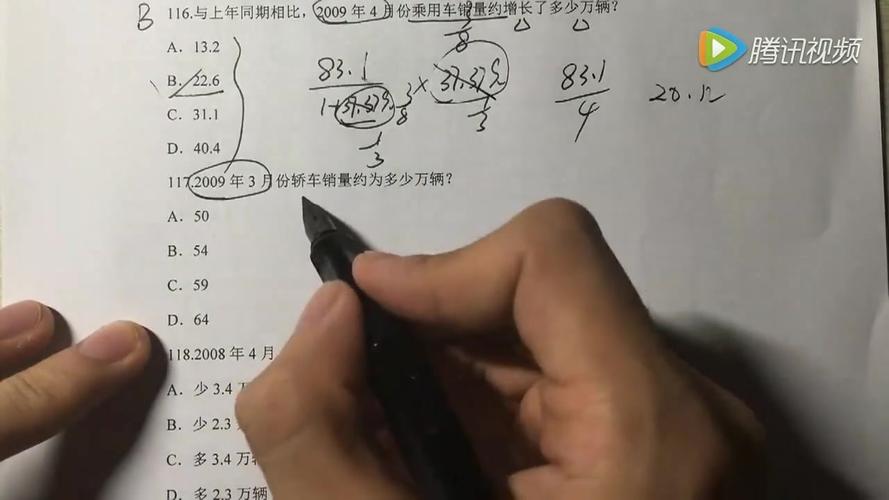 B 116.与上年同期相比，2009年4月份乘用车销量约增长了多少万辆？
腾讯视频
A．13.2
B．22.6
C．31.1
D．40.4
3/8
83.1 / 1+37.37% × 37.37%
3/8
1/3
1/3
83.1 / 4
20.12
117.2009年3月份轿车销量约为多少万辆？
A．50
B．54
C．59
D．64
118.2008年4月
A．少3.4万
B．少2.3
C．多3.4万
D．多2.3万辆